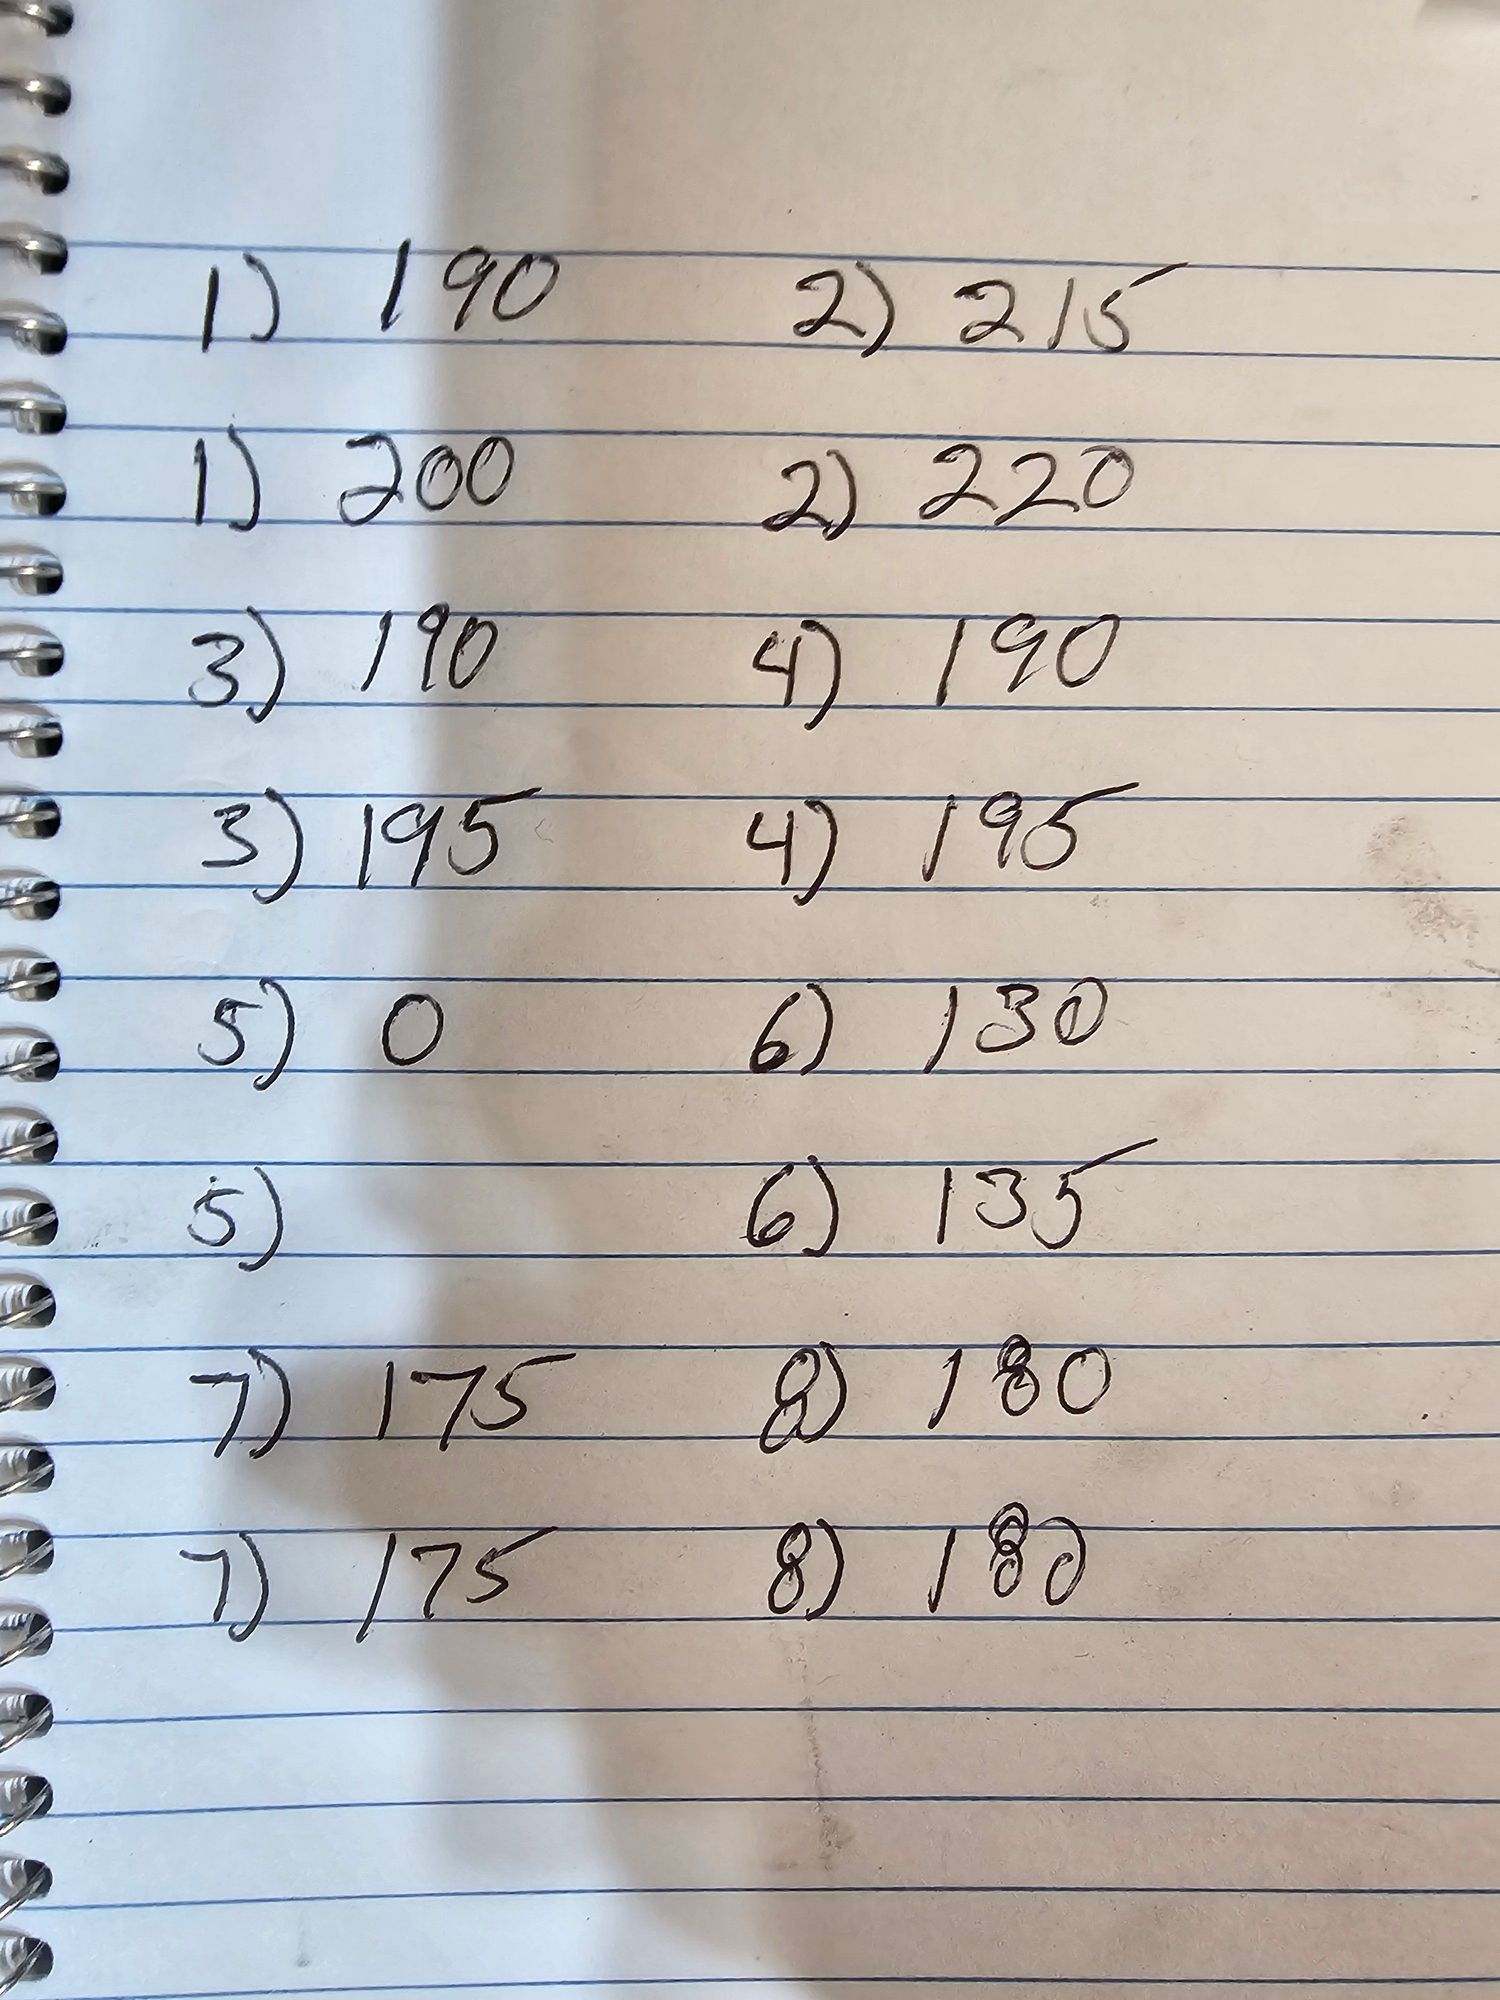 1) 190 2) 215
1) 200 2) 220
3) 190 4) 190
3) 195 4) 195
5) 0 6) 130
5) 6) 135
7) 175 8) 180
7) 175 8) 180